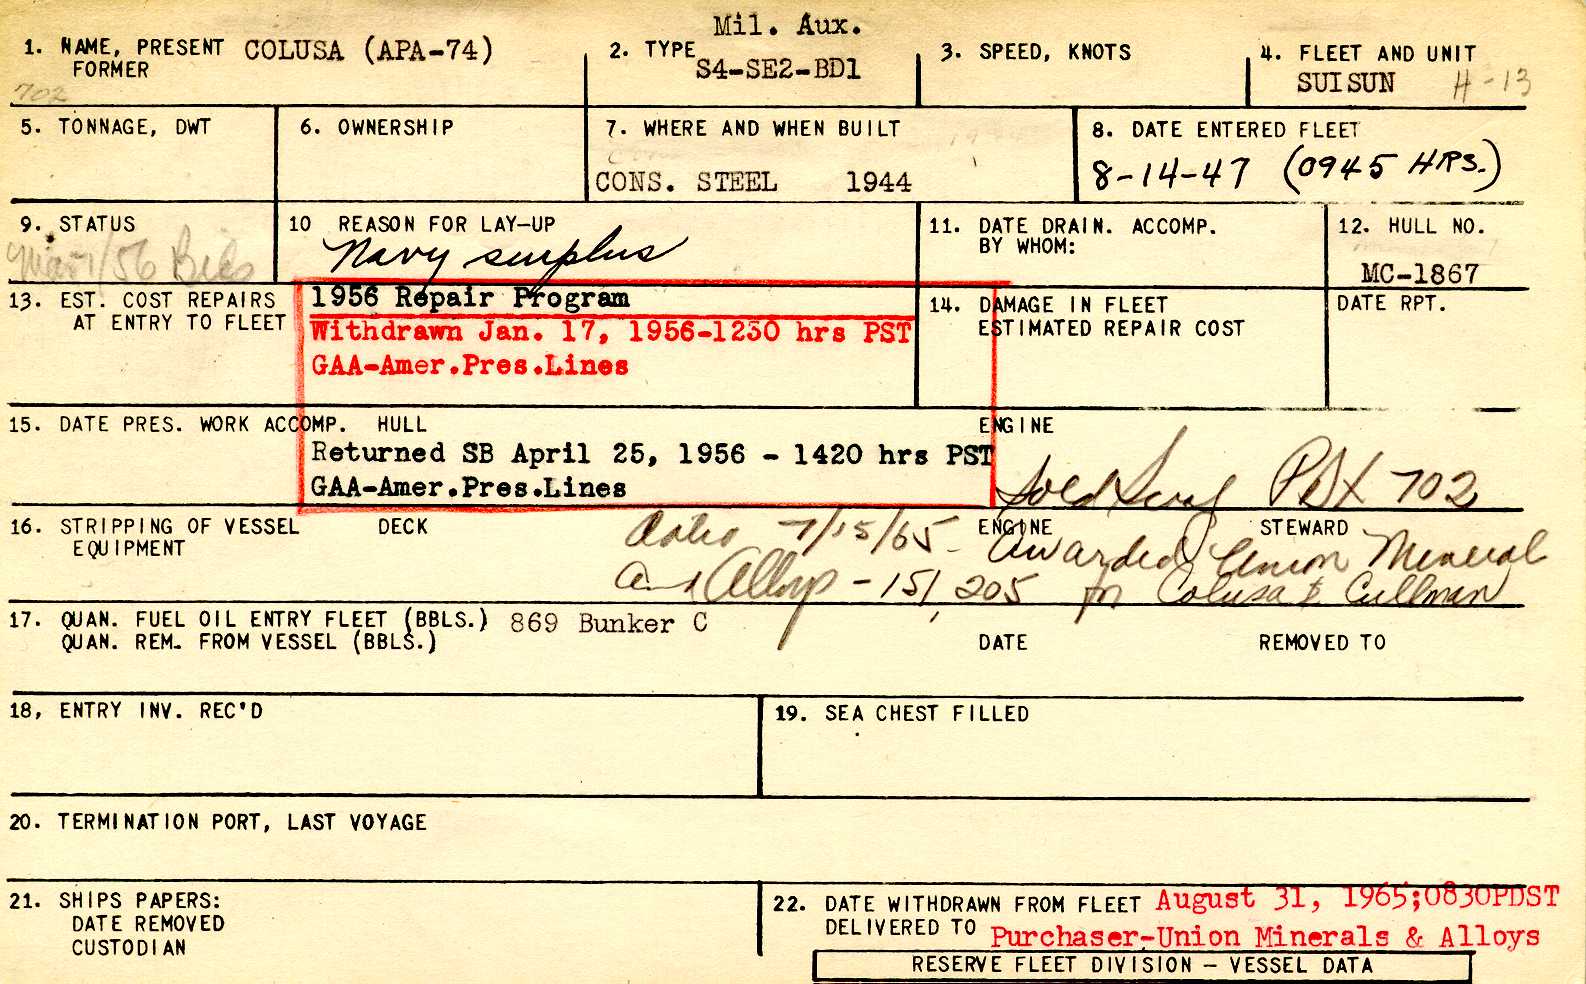 Mil. Aux.
1. NAME, PRESENT COLUSA (APA-74) 2. TYPE S4-SE2-BD1 3. SPEED, KNOTS 4. FLEET AND UNIT
FORMER SUISUN H-13
702
5. TONNAGE, DWT 6. OWNERSHIP 7. WHERE AND WHEN BUILT 8. DATE ENTERED FLEET
CONS. STEEL 1944 8-14-47 (0945 HRS.)
9. STATUS 10 REASON FOR LAY-UP 11. DATE DRAIN. ACCOMP. 12. HULL NO.
BY WHOM:
/56 Navy surplus MC-1867
13. EST. COST REPAIRS 1956 Repair Program 14. DAMAGE IN FLEET DATE RPT.
AT ENTRY TO FLEET Withdrawn Jan. 17, 1956-1230 hrs PST ESTIMATED REPAIR COST
GAA-Amer.Pres.Lines
15. DATE PRES. WORK ACCOMP. HULL ENGINE
Returned SB April 25, 1956 - 1420 hrs PST
GAA-Amer.Pres.Lines Sold Scrap PDX 702
16. STRIPPING OF VESSEL DECK 7/15/65 - ENGINE STEWARD
EQUIPMENT Awarded Union Mineral
and Alloys - 151,205 for Colusa & Cullman
17. QUAN. FUEL OIL ENTRY FLEET (BBLS.) 869 Bunker C
QUAN. REM. FROM VESSEL (BBLS.) DATE REMOVED TO
18, ENTRY INV. REC'D 19. SEA CHEST FILLED
20. TERMINATION PORT, LAST VOYAGE
21. SHIPS PAPERS: 22. DATE WITHDRAWN FROM FLEET August 31, 1965;0830PDST
DATE REMOVED DELIVERED TO Purchaser-Union Minerals & Alloys
CUSTODIAN
RESERVE FLEET DIVISION — VESSEL DATA